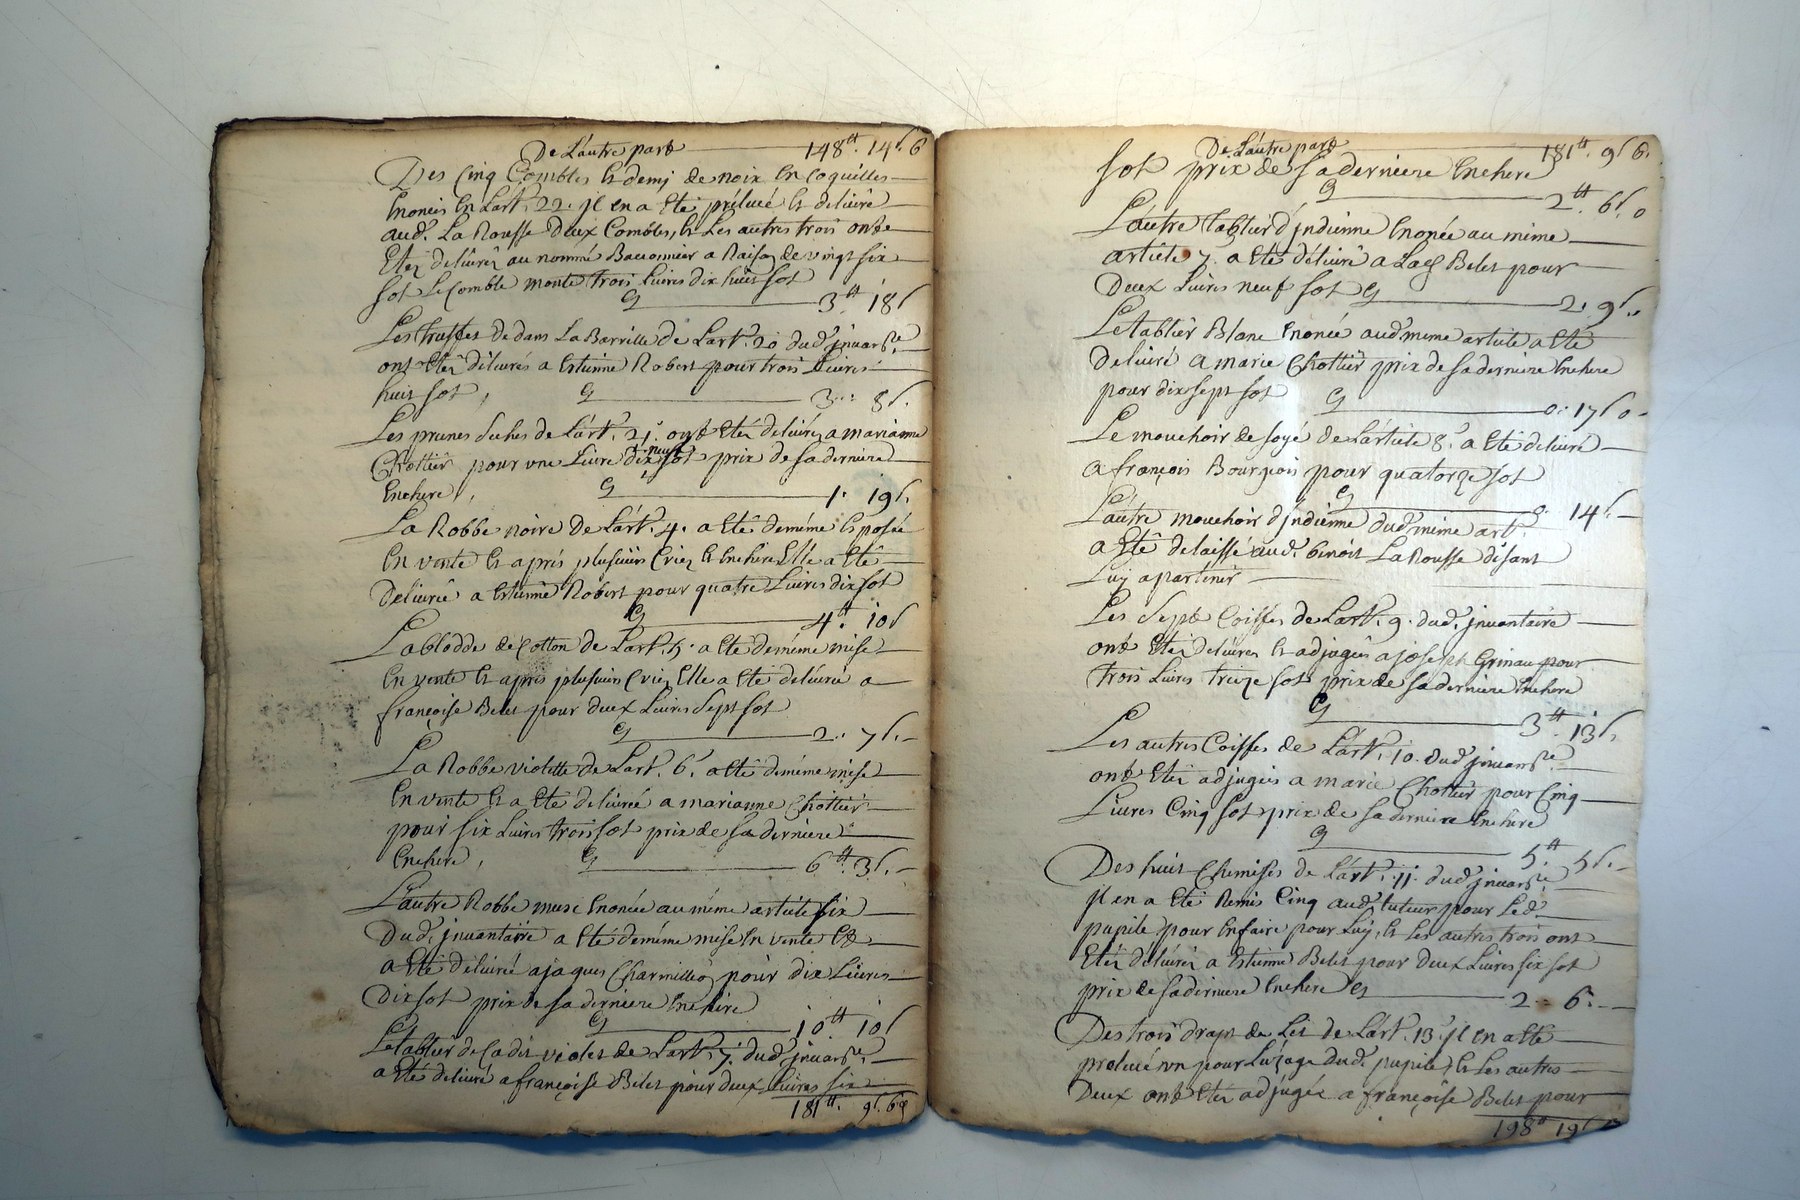 De Lautre part 148tt. 14s. 6
Des Cinq Combles et demj de noix en Coquilles
Enonces En Lart. 22. jl en a Eté prélevé et delivré
aud. La Rousse Deux Combles, et Les autres trois ont
Etez delivréz au nommé Bauonnier a Raison de vingt six
sol Le Comble monte trois Livres dix huit sol
3tt. 18s
Les truffes de dans La Barrille de Lart. 20 dud. jnvare.
ont Etez délivrés a Estienne Robert pour trois Livres
huit sol, 3.. 8s.
Les prunes seches de Lart. 21. ont Eté delivréz a marianne
Chottier pour une Livre dix neuf sol prix de sa derniere
Enchere, 1. 19s.
La Robbe noire De Lart. 4. a Eté demême Exposée
En vente et aprés plusieurs Criez et Enchere Elle a Eté
Delivrée a Estienne Robert pour quatre Livres dix sol
4tt. 10s
La blodde de Cotton de Lart. 5. a Eté demême mise
En vente et aprés plusieurs Criez Elle a Eté délivrée a
françoise Belet pour deux Livres sept sol
2. 7s.
La Robbe violette de Lart. 6. a Eté demême mise
En vente et a Eté délivréé a marianne Chottier
pour six Livres trois sol prix de sa derniere
Enchere, 6tt. 3s.
L'autre Robbe muse Enonée au même article six
Dud. jnvantaire a Eté demême mise En vente et
a Eté délivrée a jaques Charmillon pour dix Livres
Dix sol prix de sa derniere Enchere
10tt 10s
Le tablier de Cadis violet de Lart. 7. dud. jnvare.
a Eté delivré a françoise Belet pour deux Livres six
181tt. 9s. 6d
De Lautre part 181tt. 9s 6.
sol prix de sa derniere Enchere
2tt. 6s. 0
L'autre tablier d'jndienne Enonée au même
article 7. a Eté délivré a Belet pour
Deux Livres neuf sol 2. 9s.
Le tablier Blanc Enonée aud. meme article a Eté
Delivré a marie Chottier prix de sa derniere Enchere
pour dix sept sol 0. 17s 0
Le mouchoir de soyé de L'article 8. a Eté delivré
a françois Bourgois pour quatorze sol
0. 14s.
L'autre mouchoir d'jndienne dud. même art.
a Eté delaissé aud. benoit La Rousse disant
Luy apartenir
Les Sept Coiffes de Lart. 9. dud. jnvantaire
ont Etez delivrez et adjugées a joseph Grinau pour
trois Livres treize sol prix de sa derniere Enchere
3tt. 13s.
Les autres Coiffes de Lart. 10. dud. jnvare.
ont Etez adjugées a marie Chottier pour Cinq
Livres Cinq sol prix de sa derniere Enchere
5.tt 5s.
Des huit Chemises de Lart. 11. dud. jnvare.
jl en a Eté Remis Cinq aud. tuteur pour Led.
pupile pour En faire pour Luy, et Les autres trois ont
Etéz délivréz a Estienne Belet pour Deux Livres six sol
prix de sa derniere Enchere 2.. 6.
Des trois draps de Lit de Lart. 13. jl en a Eté
prelevé un pour Luzage dud. pupile, et Les autres
Deux ont Etéz adjugés a françoise Belet pour
198tt 19s